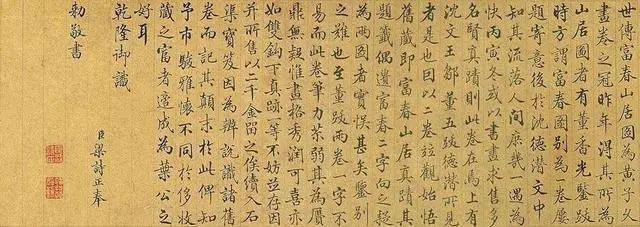 世傳富春山居圖為黃子久
畫卷之冠昨年得其所為
山居圖者有董香光鑒跋
時方謂富春圖別為卷屢
題寄意後於沈德潛文中
知其流落人間庶幾一遇為
快丙寅冬或以書畫求售多
名賢真蹟則此卷在焉上有
沈文王鄒董五跋德潛所見
者是也因以二卷並觀始悟
舊藏即富春山居真蹟其
題籤偶遺富春二字向之疑
為兩圖者實悞甚矣鑒別
之難也至董跋兩卷一字不
易而此卷筆力苶弱其為贗
鼎無疑惟畫格秀潤可喜亦
如雙鉤下真跡一等不妨並存因
并所售以二千金留之俟續入石
渠寶笈因為辨說識諸舊
卷而記其顛末於此俾知
予市駿雅懷不同於侈收
藏之富者適成為葉公之
好耳
乾隆御識
臣梁詩正奉
勅敬書